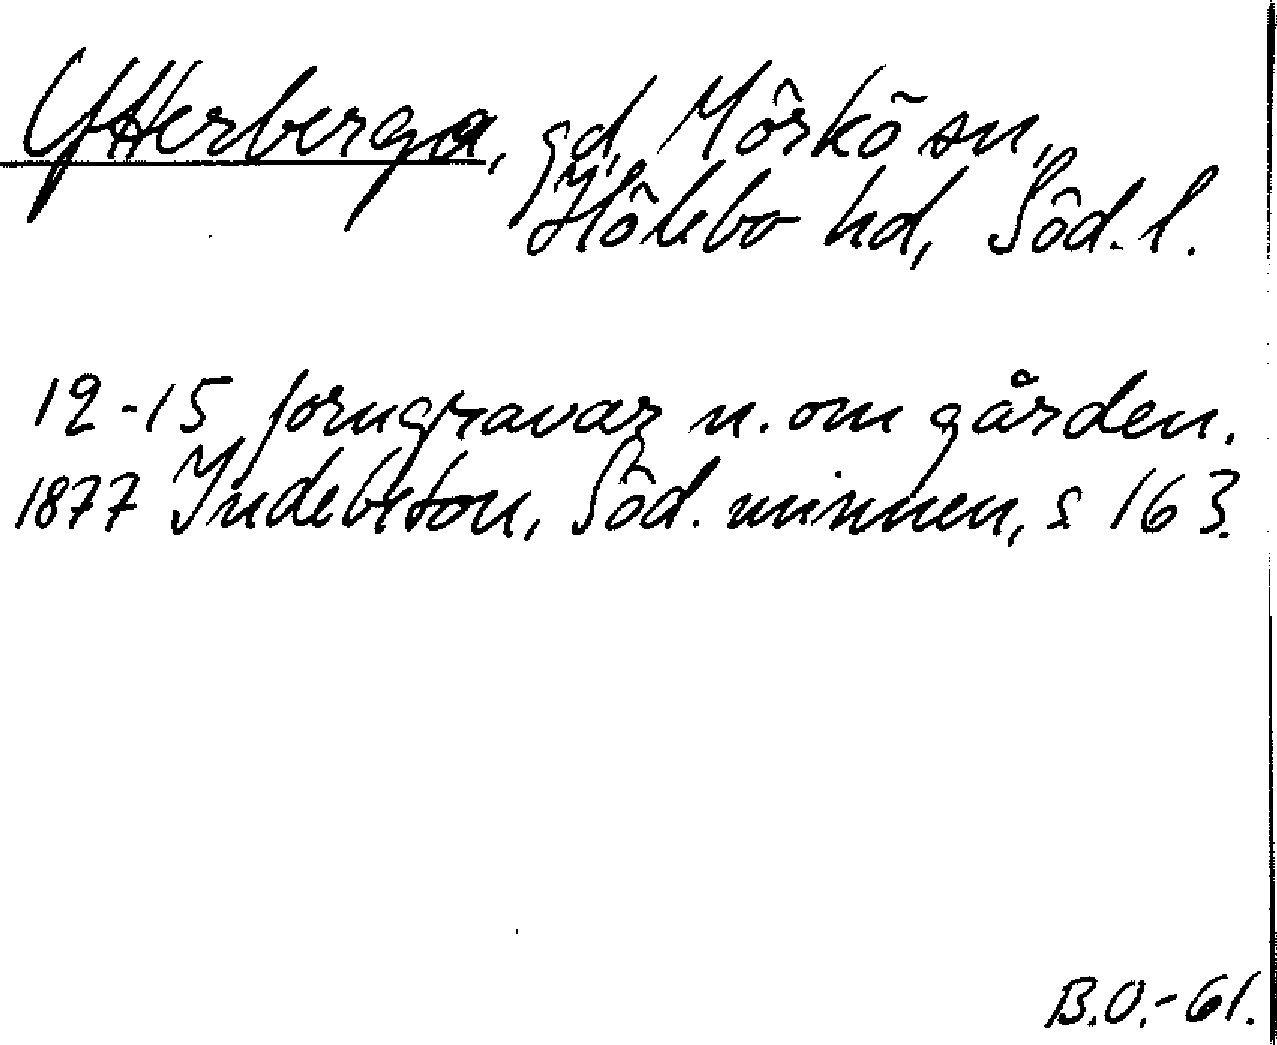 Ytterberga, gd, Mörkö sn,
Hölebo hd, Söd. l.
12-15 forngravar n. om gården.
1877 Indebetou, Söd. minnen, s 163.
B.O.-61.